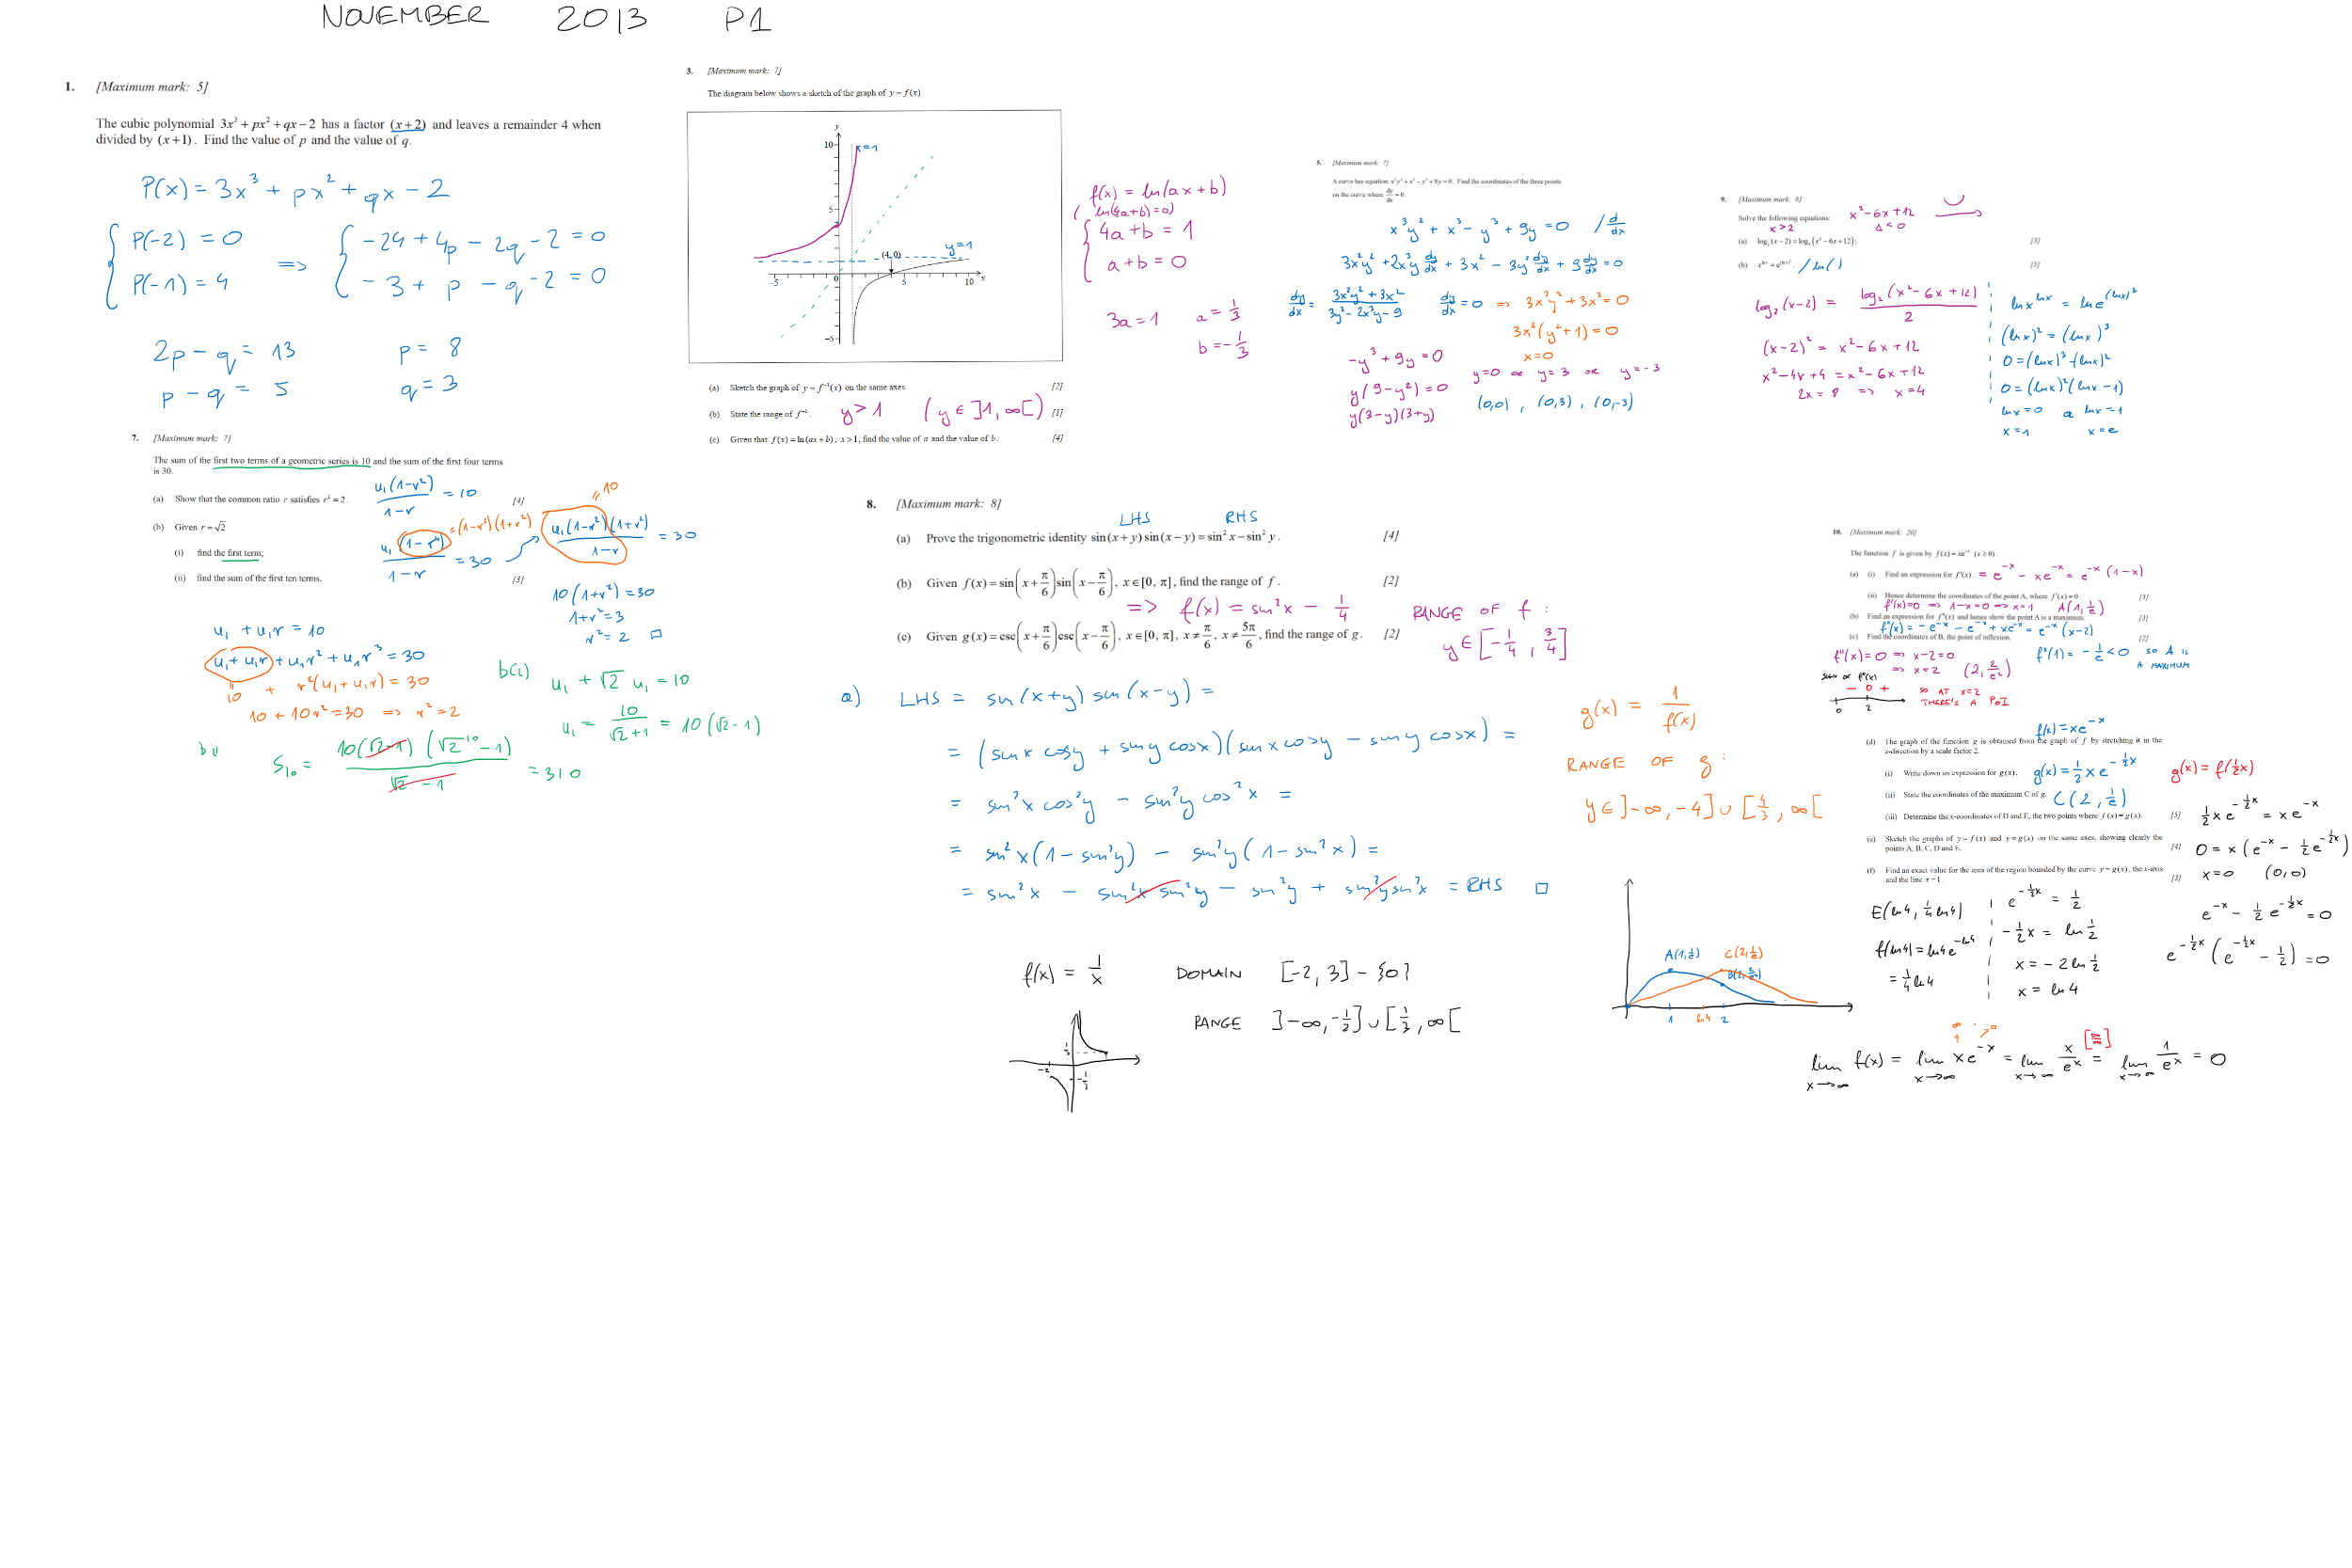 NOVEMBER 2013 P1
1. [Maximum mark: 5]
The cubic polynomial 3x³ + px² + qx − 2 has a factor (x+2) and leaves a remainder 4 when
divided by (x+1). Find the value of p and the value of q.
P(x) = 3x³ + px² + qx − 2
P(-2) = 0 => -24 + 4p − 2q − 2 = 0
P(-1) = 4 −3 + p − q − 2 = 0
2p − q = 13 p = 8
p − q = 5 q = 3
3. [Maximum mark: 7]
The diagram below shows a sketch of the graph of y = f(x).
y
10
x=1
5
(4, 0)
y=1
-5 0 5 10 x
-5
(a) Sketch the graph of y = f⁻¹(x) on the same axes [2]
(b) State the range of f⁻¹. y > 1 (y ∈ ]1, ∞[) [1]
(c) Given that f(x) = ln(ax + b), x > 1, find the value of a and the value of b. [4]
f(x) = ln(ax+b)
(ln(4a+b)=0)
4a + b = 1
a + b = 0
3a = 1 a = 1/3
b = −1/3
5. [Maximum mark: 7]
A curve has equation x³y² + x³ − y³ + 9y = 0. Find the coordinates of the three points
on the curve where dy/dx = 0.
x³y² + x³ − y³ + 9y = 0 / d/dx
3x²y² + 2x³y dy/dx + 3x² − 3y² dy/dx + 9 dy/dx = 0
dy/dx = (3x²y² + 3x²)/(3y² − 2x³y − 9) dy/dx = 0 => 3x²y² + 3x² = 0
3x²(y²+1) = 0
−y³ + 9y = 0 x = 0
y(9−y²) = 0 y=0 or y=3 or y=−3
y(3−y)(3+y) (0,0), (0,3), (0,−3)
9. [Maximum mark: 8]
Solve the following equations: x² − 6x + 12
x>2 Δ<0
(a) log₂(x − 2) = log₄(x² − 6x + 12); [3]
(b) x^(ln x) = e^((ln x)³). / ln( ) [5]
log₂(x−2) = log₂(x² − 6x + 12)/2
(x−2)² = x² − 6x + 12
x² − 4x + 4 = x² − 6x + 12
2x = 8 => x = 4
ln x^(ln x) = ln e^((ln x)³)
(ln x)² = (ln x)³
0 = (ln x)³ − (ln x)²
0 = (ln x)²(ln x − 1)
ln x = 0 or ln x = 1
x = 1 x = e
7. [Maximum mark: 7]
The sum of the first two terms of a geometric series is 10 and the sum of the first four terms
is 30.
(a) Show that the common ratio r satisfies r² = 2. [4]
(b) Given r = √2
(i) find the first term;
(ii) find the sum of the first ten terms. [3]
u₁(1−r²)/(1−r) = 10
u₁(1−r⁴)/(1−r) = 30
=(1−r²)(1+r²)
u₁(1−r²)(1+r²)/(1−r) = 30
= 10
10(1+r²) = 30
1+r² = 3
r² = 2 □
u₁ + u₁r = 10
u₁ + u₁r + u₁r² + u₁r³ = 30
10 + r²(u₁ + u₁r) = 30
10 + 10r² = 30 => r² = 2
b(i) u₁ + √2 u₁ = 10
u₁ = 10/(√2+1) = 10(√2−1)
b ii S₁₀ = 10(√2−1)(√2¹⁰−1)/(√2−1) = 310
8. [Maximum mark: 8]
LHS RHS
(a) Prove the trigonometric identity sin(x + y) sin(x − y) = sin² x − sin² y. [4]
(b) Given f(x) = sin(x + π/6) sin(x − π/6), x ∈ [0, π], find the range of f. [2]
=> f(x) = sin²x − 1/4 RANGE OF f :
(c) Given g(x) = csc(x + π/6) csc(x − π/6), x ∈ [0, π], x ≠ π/6, x ≠ 5π/6, find the range of g. [2]
y ∈ [−1/4, 3/4]
a) LHS = sin(x+y) sin(x−y) =
= (sin x cos y + sin y cos x)(sin x cos y − sin y cos x) =
= sin²x cos²y − sin²y cos²x =
= sin²x(1−sin²y) − sin²y(1−sin²x) =
= sin²x − sin²x sin²y − sin²y + sin²y sin²x = RHS □
g(x) = 1/f(x)
RANGE OF g :
y ∈ ]−∞, −4] ∪ [4/3, ∞[
f(x) = 1/x DOMAIN [−2, 3] − {0}
RANGE ]−∞, −1/2] ∪ [1/3, ∞[
1/3
−2
−1/2
10. [Maximum mark: 20]
The function f is given by f(x) = xe⁻ˣ (x ≥ 0).
(a) (i) Find an expression for f′(x). = e⁻ˣ − xe⁻ˣ = e⁻ˣ(1−x)
(ii) Hence determine the coordinates of the point A, where f′(x) = 0. [3]
f'(x)=0 => 1−x=0 => x=1 A(1, 1/e)
(b) Find an expression for f″(x) and hence show the point A is a maximum. [3]
f''(x) = −e⁻ˣ − e⁻ˣ + xe⁻ˣ = e⁻ˣ(x−2)
(c) Find the coordinates of B, the point of inflexion. [2]
f''(x)=0 => x−2=0 f''(1) = −1/e < 0 SO A IS
=> x=2 (2, 2/e²) A MAXIMUM
SIGN OF f''(x)
− 0 + SO AT x=2
0 2 THERE'S A PoI
f(x) = xe⁻ˣ
(d) The graph of the function g is obtained from the graph of f by stretching it in the
x-direction by a scale factor 2.
(i) Write down an expression for g(x). g(x) = ½xe^(−½x) g(x) = f(½x)
(ii) State the coordinates of the maximum C of g. C(2, 1/e)
(iii) Determine the x-coordinates of D and E, the two points where f(x) = g(x). [5]
(e) Sketch the graphs of y = f(x) and y = g(x) on the same axes, showing clearly the
points A, B, C, D and E. [4]
(f) Find an exact value for the area of the region bounded by the curve y = g(x), the x-axis
and the line x = 1. [3]
½xe^(−½x) = xe⁻ˣ
0 = x(e⁻ˣ − ½e^(−½x))
x=0 (0,0)
e⁻ˣ − ½e^(−½x) = 0
e^(−½x)(e^(−½x) − ½) = 0
e^(−½x) = ½
−½x = ln ½
x = −2 ln ½
x = ln 4
E(ln4, ¼ ln4)
f(ln4) = ln4 e^(−ln4)
= ¼ ln4
A(1, 1/e) C(2, 1/e)
B(2, 2/e²)
1 ln4 2
lim x→∞ f(x) = lim x→∞ xe⁻ˣ = lim x→∞ x/eˣ [∞/∞] = lim x→∞ 1/eˣ = 0